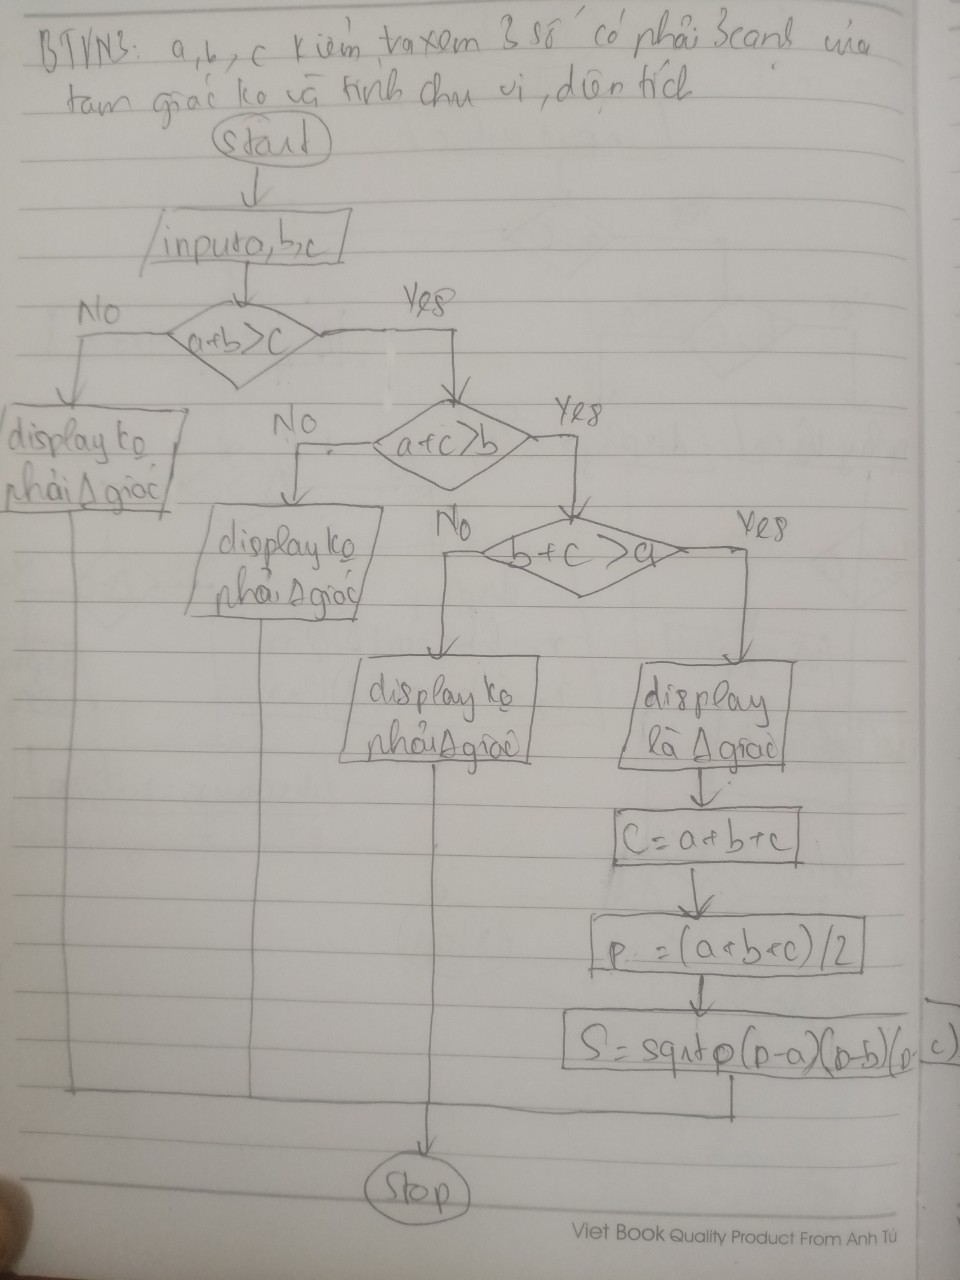 BTVN3: a, b, c kiểm tra xem 3 số có phải 3 cạnh của
tam giác ko và tính chu vi, diện tích
Start
input a, b, c
No
a+b>c
Yes
display ko
phải Δ giác
No
a+c>b
Yes
display ko
phải Δ giác
No
b+c>a
Yes
display ko
phải Δ giác
display
là Δ giác
C = a+b+c
p = (a+b+c)/2
S = sqrt p(p-a)(p-b)(p-c)
Stop
Viet Book Quality Product From Anh Tú